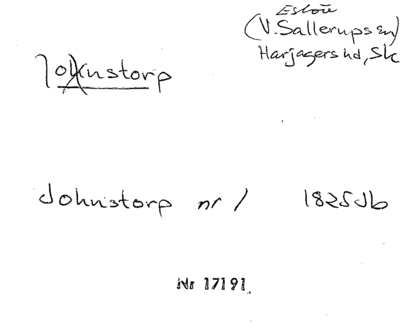 Eslöv
(V. Sallerups sn)
Harjagers hd, Sk
Johnstorp
Johnstorp nr 1 1825 Jb
Nr 17191.